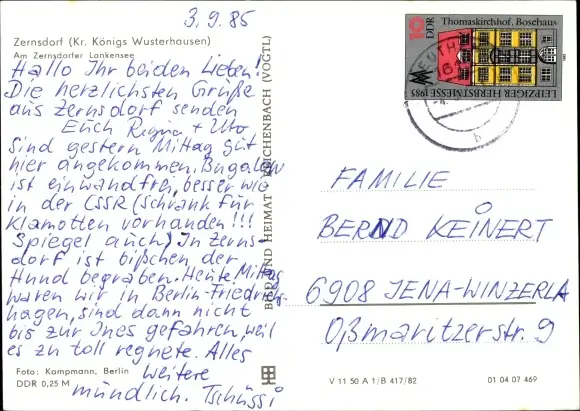 3.9.85
Zernsdorf (Kr. Königs Wusterhausen)
Am Zernsdorfer Lankensee
Hallo Ihr beiden Lieben!
Die herzlichsten Grüße
aus Zernsdorf senden
Euch Regina + Udo
sind gestern Mittag gut
hier angekommen. Bungalow
ist einwandfrei, besser wie
in der CSSR (Schrank für
Klamotten vorhanden!!!
Spiegel auch) In Zerns-
dorf ist bißchen der
Hund begraben. Heute Mittag
waren wir in Berlin-Friedrichs-
hagen, sind dann nicht
bis zur Ines gefahren, weil
es zu toll regnete. Alles
weitere
mündlich. Tschüssi
Foto: Kampmann, Berlin
DDR 0,25 M
BILD UND HEIMAT REICHENBACH (VOGTL)
10 DDR
Thomaskirchhof, Bosehaus
LEIPZIGER HERBSTMESSE 1985
FAMILIE
BERND KEINERT
6908 JENA-WINZERLA
Oßmaritzerstr. 9
V 11 50 A 1/B 417/82
01 04 07 469